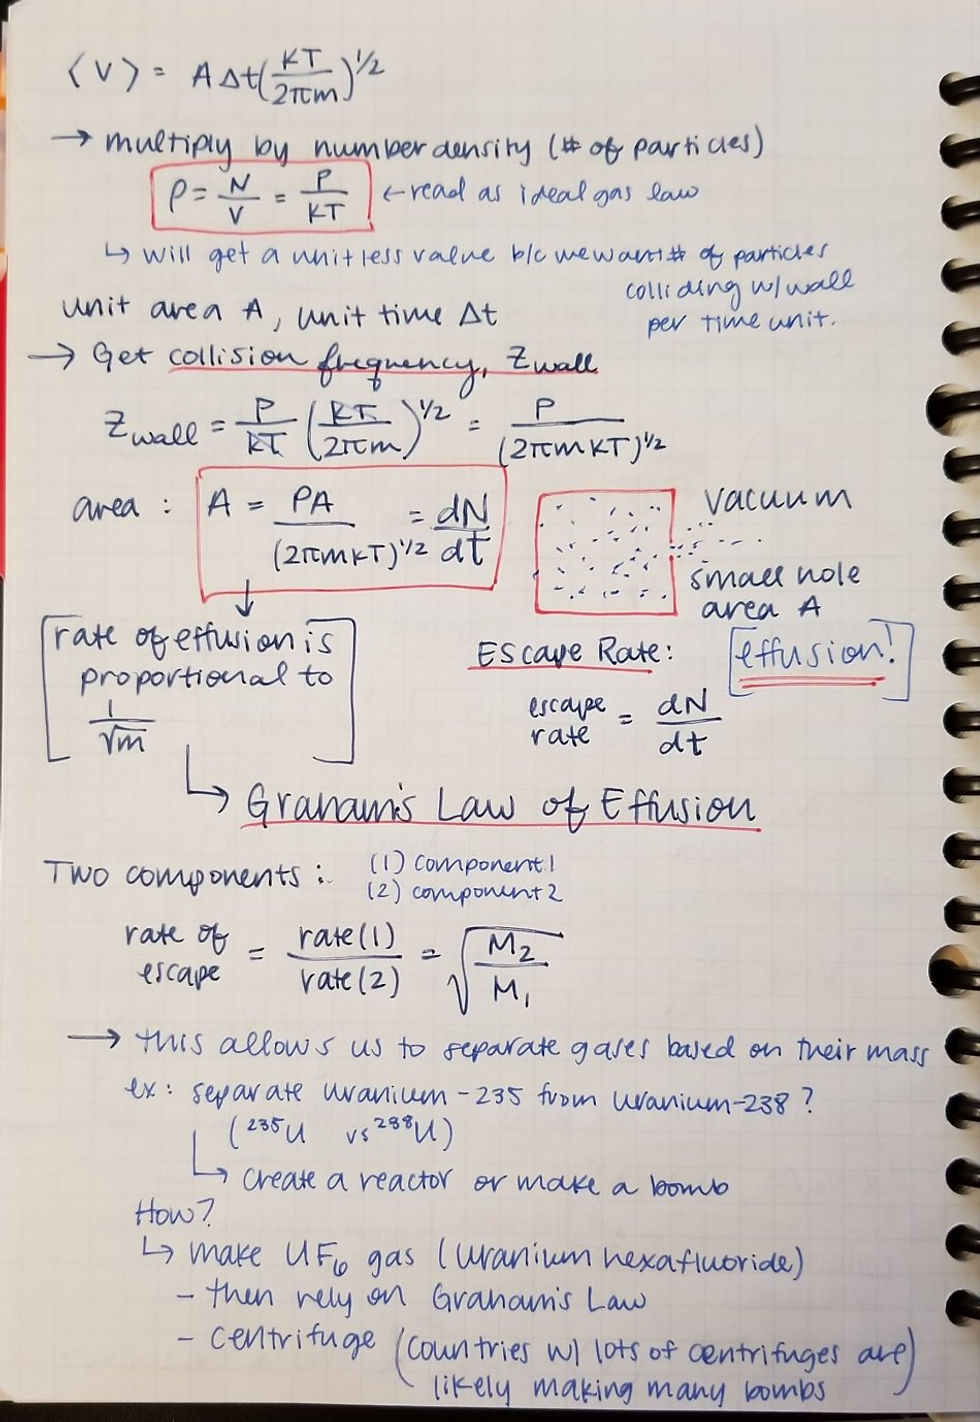 ⟨V⟩ = AΔt(KT/2πm)^1/2
→ multiply by number density (# of particles)
ρ = N/V = P/KT ← read as ideal gas law
↳ will get a unitless value b/c we want # of particles
colliding w/ wall
per time unit.
unit area A, unit time Δt
→ Get collision frequency, Z wall
Z wall = P/KT (KT/2πm)^1/2 = P/(2πmKT)^1/2
area : A = PA/(2πmKT)^1/2 = dN/dt
vacuum
small hole
area A
rate of effusion is
proportional to
1/√m
Escape Rate: effusion!
escape rate = dN/dt
↳ Graham's Law of Effusion
Two components : (1) component 1
(2) component 2
rate of escape = rate(1)/rate(2) = √(M₂/M₁)
→ this allows us to separate gases based on their mass
ex: separate uranium-235 from uranium-238?
(²³⁵U vs ²³⁸U)
↳ create a reactor or make a bomb
How?
↳ make UF₆ gas (uranium hexafluoride)
- then rely on Graham's Law
- centrifuge (countries w/ lots of centrifuges are
likely making many bombs)